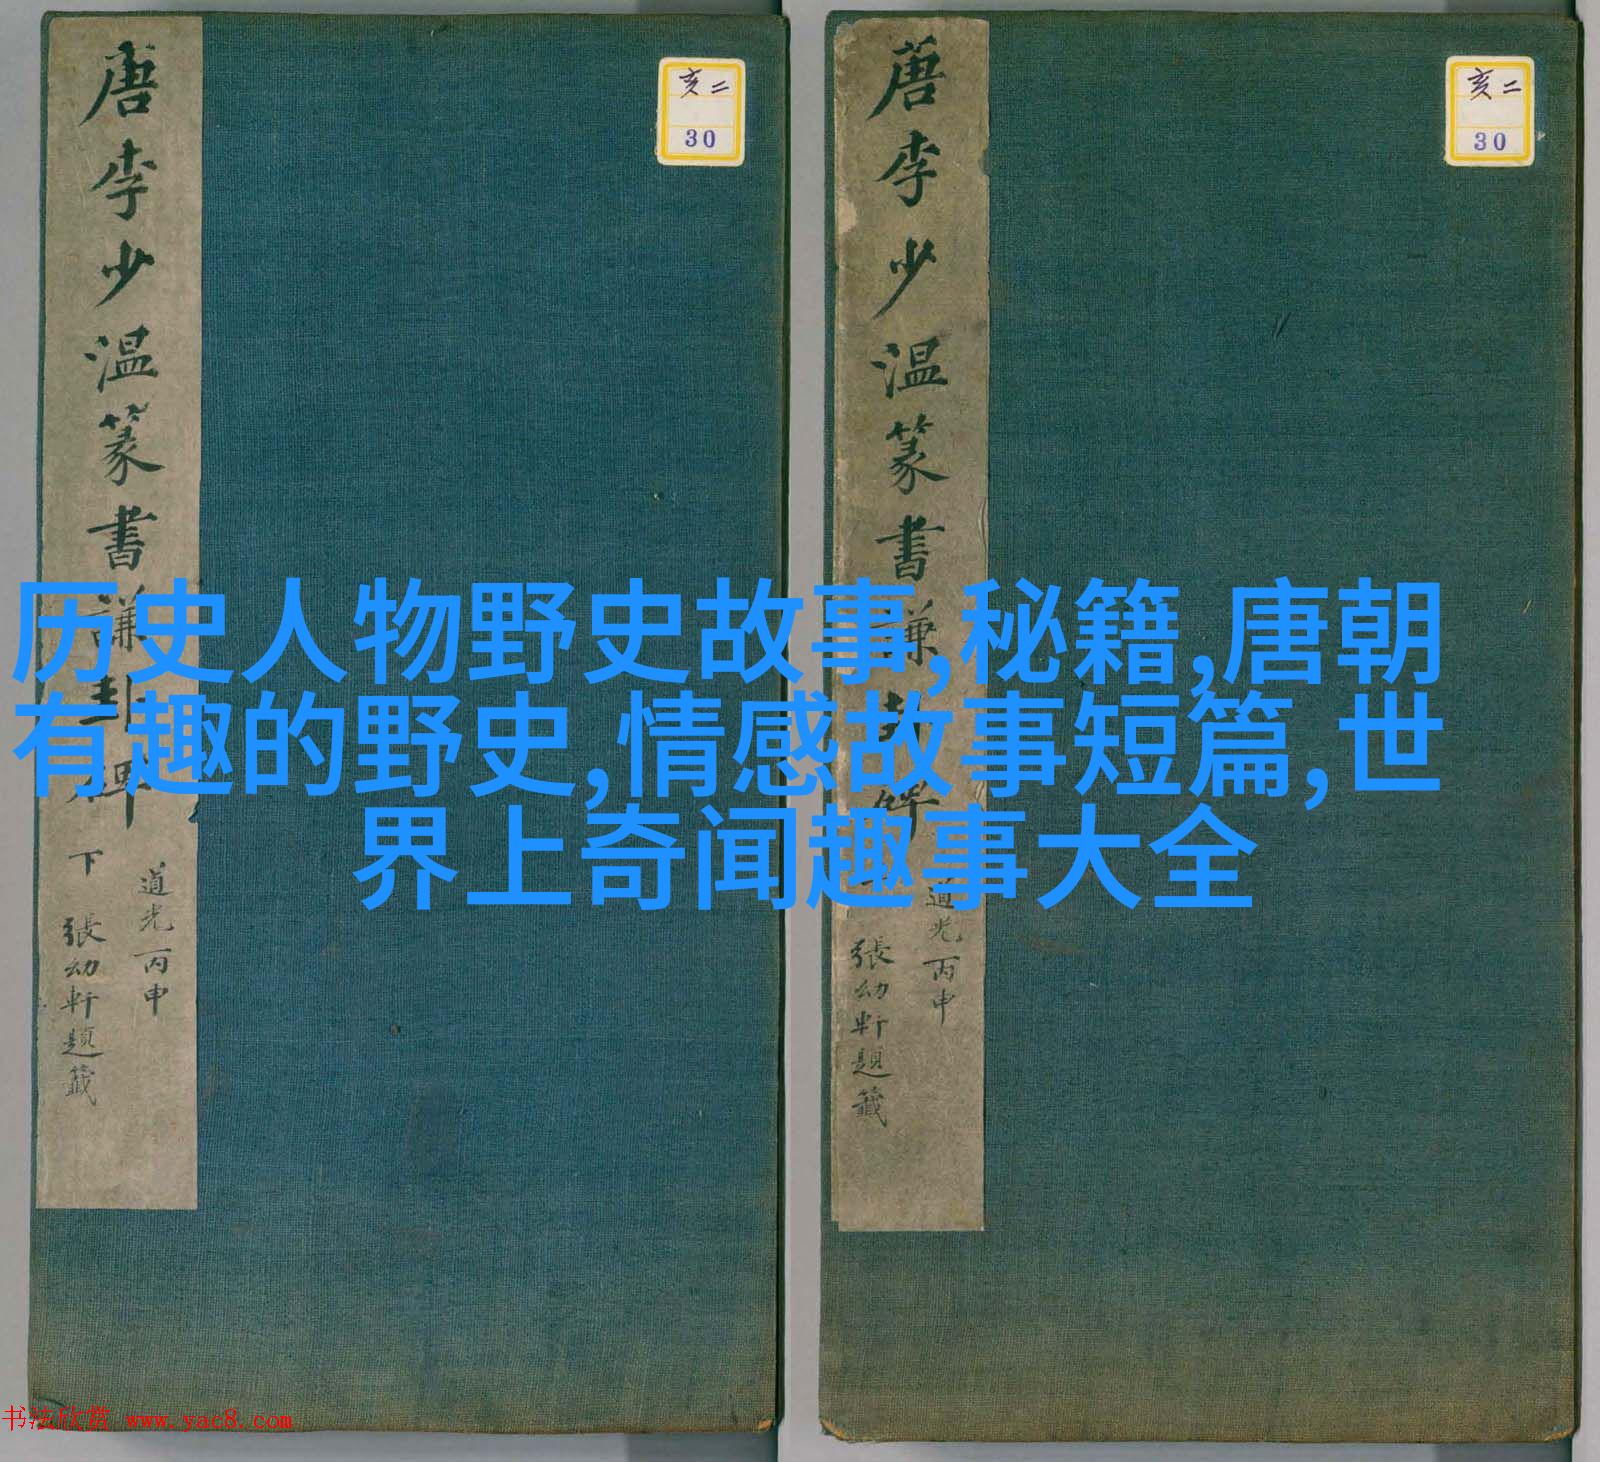 唐李少温篆書謙卦碑
下
道光丙申
張幼軒題籤
亥二
30
唐李少温篆書謙卦碑
道光丙申
張幼軒題籤
亥二
30
历史人物野史故事,秘籍,唐朝
有趣的野史,情感故事短篇,世
界上奇闻趣事大全
书法欣赏 www.yac8.com